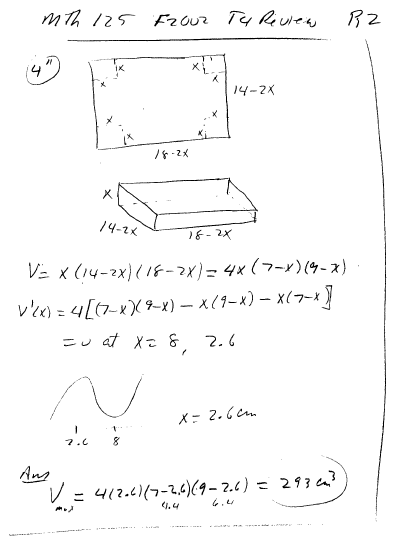 Mth 125 F2002 T4 Review R2
4"
x x
x x
14-2x
x x
x x
18-2x
x
14-2x 18-2x
V= x(14-2x)(18-2x) = 4x(7-x)(9-x)
V'(x) = 4[(7-x)(9-x) - x(9-x) - x(7-x]
=0 at x= 8, 2.6
2.6 8 x = 2.6 cm
Ans
Vmax = 4(2.6)(7-2.6)(9-2.6) = 293 cm³
4.4 6.4